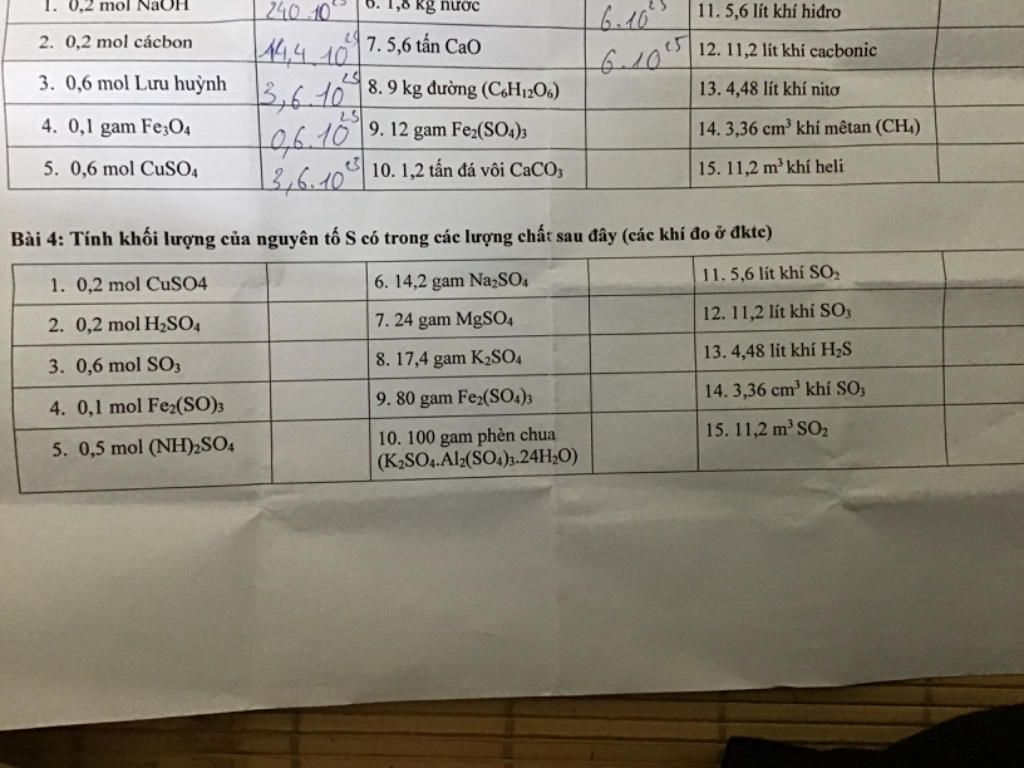 1. 0,2 mol NaOH 240.10²³ 6. 1,8 kg nước 6.10²⁵ 11. 5,6 lít khí hiđro
2. 0,2 mol cácbon 14,4.10²³ 7. 5,6 tấn CaO 6.10²⁵ 12. 11,2 lít khí cacbonic
3. 0,6 mol Lưu huỳnh 3,6.10²³ 8. 9 kg đường (C₆H₁₂O₆) 13. 4,48 lít khí nitơ
4. 0,1 gam Fe₃O₄ 0,6.10²³ 9. 12 gam Fe₂(SO₄)₃ 14. 3,36 cm³ khí mêtan (CH₄)
5. 0,6 mol CuSO₄ 3,6.10²³ 10. 1,2 tấn đá vôi CaCO₃ 15. 11,2 m³ khí heli
Bài 4: Tính khối lượng của nguyên tố S có trong các lượng chất sau đây (các khí đo ở đktc)
1. 0,2 mol CuSO4 6. 14,2 gam Na₂SO₄ 11. 5,6 lít khí SO₂
2. 0,2 mol H₂SO₄ 7. 24 gam MgSO₄ 12. 11,2 lít khí SO₃
3. 0,6 mol SO₃ 8. 17,4 gam K₂SO₄ 13. 4,48 lít khí H₂S
4. 0,1 mol Fe₂(SO)₃ 9. 80 gam Fe₂(SO₄)₃ 14. 3,36 cm³ khí SO₃
5. 0,5 mol (NH)₂SO₄ 10. 100 gam phèn chua 15. 11,2 m³ SO₂
(K₂SO₄.Al₂(SO₄)₃.24H₂O)